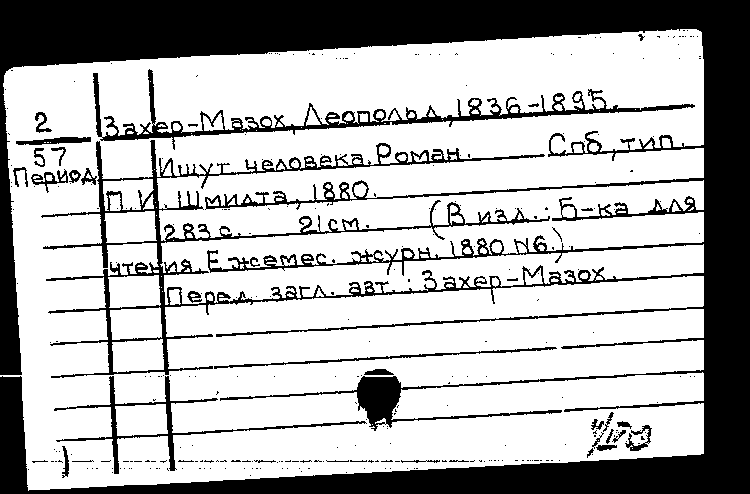 2
57
Период.
Захер-Мазох, Леопольд, 1836-1895.
Ищут человека. Роман. Спб, тип.
П.И. Шмидта, 1880.
283 с. 21 см. (В изд.: Б-ка для
чтения. Ежемес. журн. 1880 N6.).
Перед загл. авт.: Захер-Мазох.